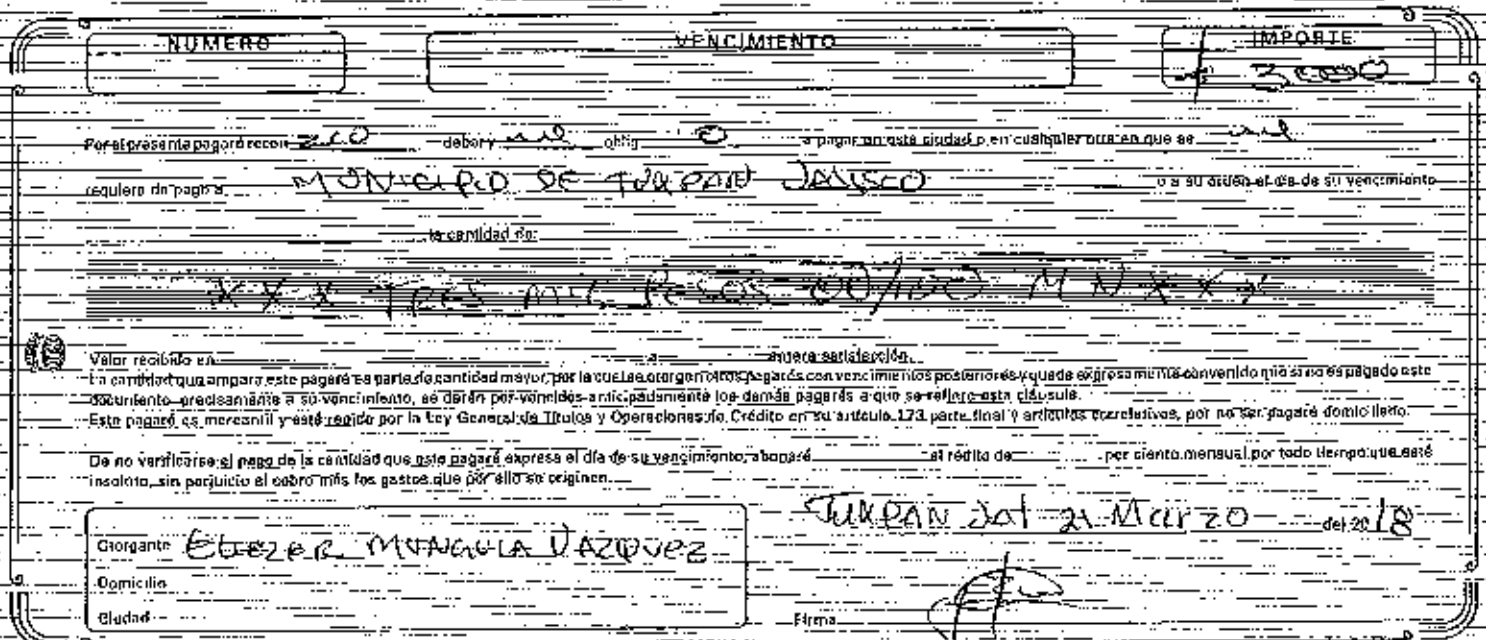 NUMERO VENCIMIENTO IMPORTE
$ 3000
Por el presente pagaré recono zco deber y me oblig o a pagar en esta ciudad o en cualquier otra en que se me
requiera de pago a MUNICIPIO DE TUXPAN JALISCO o a su orden el día de su vencimiento
la cantidad de:
X X X TRES MIL PESOS 00/100 M N X X X
Valor recibido en a entera satisfacción.
La cantidad que ampara este pagaré es parte de cantidad mayor, por la cual se otorgan otros pagarés con vencimientos posteriores y queda expresamente convenido que si no es pagado este
documento precisamente a su vencimiento, se darán por vencidos anticipadamente los demás pagarés a que se refiere esta cláusula.
Este pagaré es mercantil y está regido por la Ley General de Títulos y Operaciones de Crédito en su artículo 173 parte final y artículos correlativos, por no ser pagaré domiciliado.
De no verificarse el pago de la cantidad que este pagaré expresa el día de su vencimiento, abonaré el rédito de por ciento mensual por todo tiempo que esté
insoluto, sin perjuicio al cobro más los gastos que por ello se originen.
TUXPAN Jal 21 Marzo del 20 18
Otorgante ELIEZER MUNGUIA VAZQUEZ
Domicilio
Ciudad
Firma